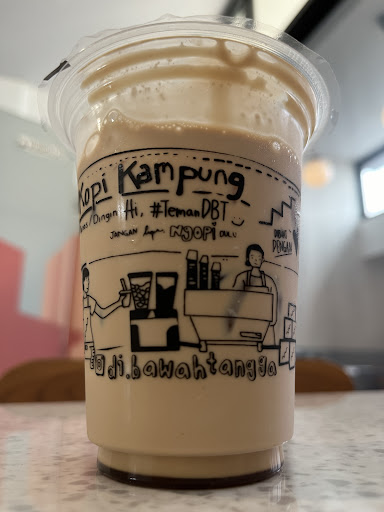 Kopi Kampung
/Dingin Hi, #TemanDBT
JANGAN lupa NGOPI
DENGAN
@di.bawahtangga